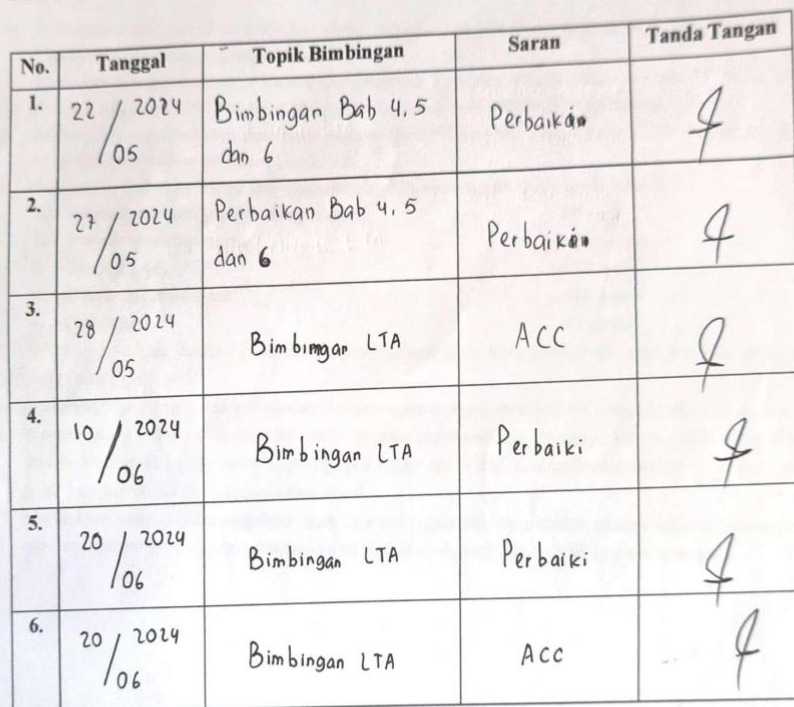 No. Tanggal Topik Bimbingan Saran Tanda Tangan
1. 22 / 2024 Bimbingan Bab 4.5 Perbaikan
05 dan 6
2. 27 / 2024 Perbaikan Bab 4.5 Perbaikan
05 dan 6
3. 28 / 2024 Bimbingan LTA ACC
05
4. 10 / 2024 Bimbingan LTA Perbaiki
06
5. 20 / 2024 Bimbingan LTA Perbaiki
06
6. 20 / 2024 Bimbingan LTA ACC
06